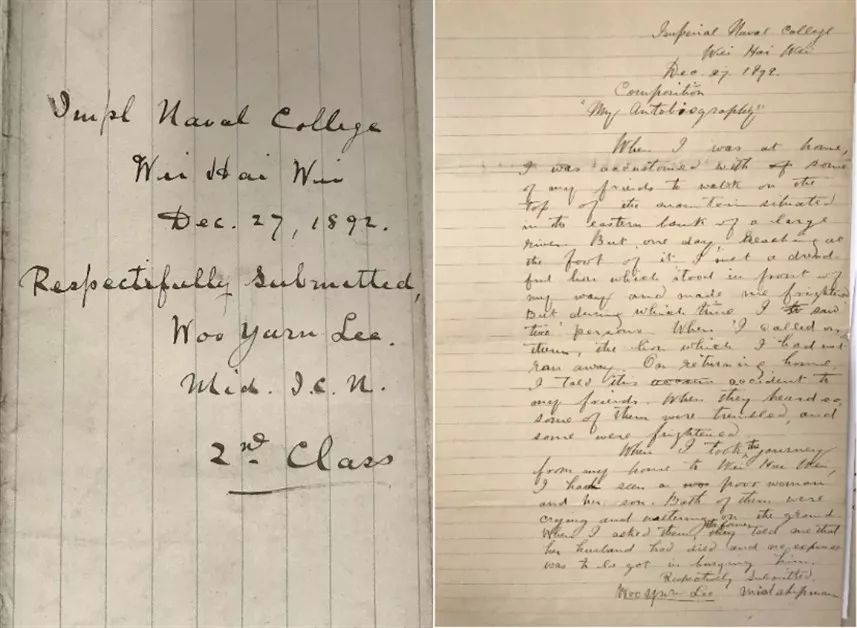 Impl Naval College
Wei Hai Wei
Dec. 27, 1892.
Respectfully Submitted,
Woo Yurn Lee.
Mid. I. C. N.
2nd Class
Imperial Naval College
Wei Hai Wei
Dec. 27 1892.
Composition
"My Autobiography"
When I was at home,
I was accustomed with some
of my friends to walk on the
top of the mountain situated
in the eastern bank of a large
river. But, one day, reaching at
the foot of it I met a dread-
ful lion which stood in front of
my way and made me frightened
But during which time I saw
two persons. When I called on
them, the lion which I had met
ran away. On returning home,
I told this accident to
my friends. When they heard so,
some of them were and
some were frightened.
When I took the journey
from my home to Wei Hai Wei,
I had seen a poor woman
and her son. Both of them were
crying and on the ground
When I asked them, the former told me that
her husband had died and no expense
was to be got in burying him.
Respectfully Submitted,
Woo Yurn Lee Midshipman